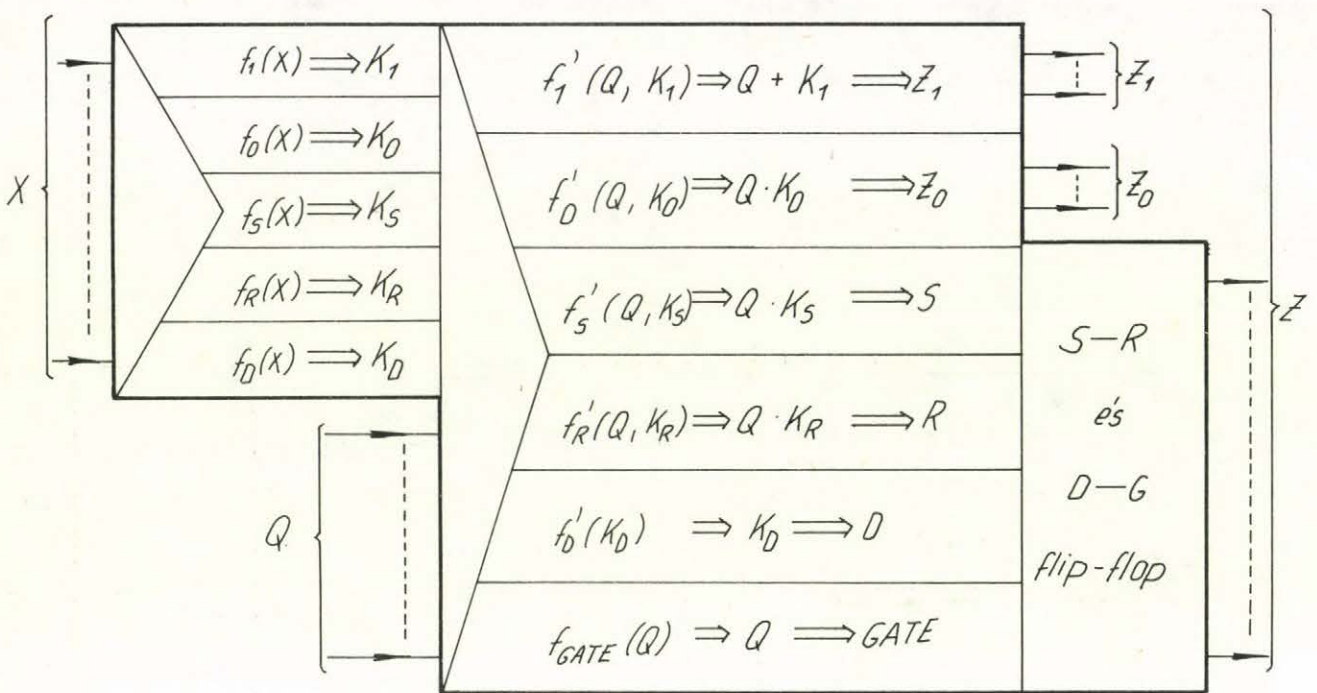 X
f₁(X) ⟹ K₁
f₀(X) ⟹ K₀
f_S(X) ⟹ K_S
f_R(X) ⟹ K_R
f_D(X) ⟹ K_D
Q
f₁'(Q, K₁) ⇒ Q + K₁ ⟹ Z₁
f₀'(Q, K₀) ⇒ Q · K₀ ⟹ Z₀
f_S'(Q, K_S) ⇒ Q · K_S ⟹ S
f_R'(Q, K_R) ⇒ Q · K_R ⟹ R
f_D'(K_D) ⇒ K_D ⟹ D
f_GATE(Q) ⇒ Q ⟹ GATE
S—R
és
D—G
flip-flop
Z₁
Z₀
Z